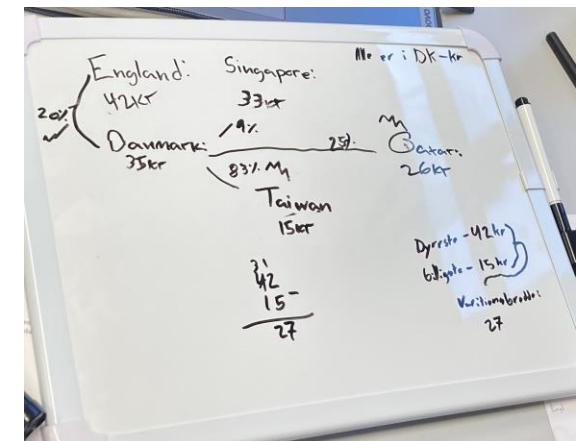 Alle er i DK-kr
England:
42kr
Singapore:
33kr
20%
Danmark:
35kr
9%
25%
Qatar:
26kr
83%
Taiwan
15kr
31
42
15-
27
Dyreste - 42kr
billigste - 15kr
Variationsbredde:
27